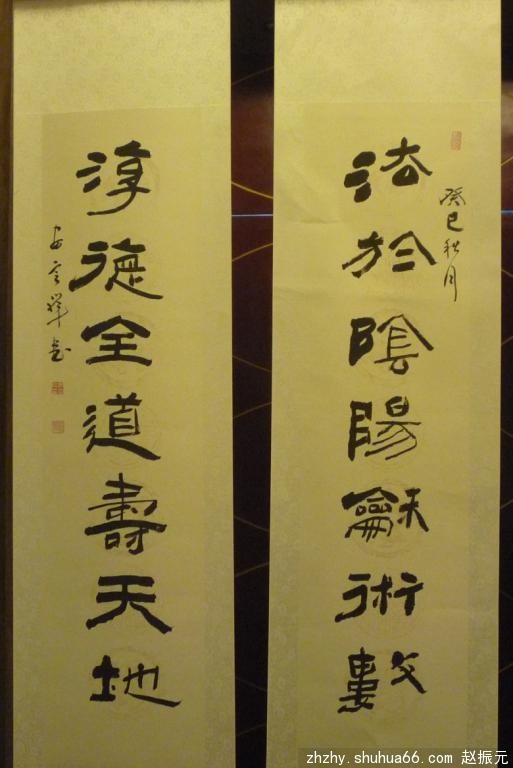 癸巳秋月
法於陰陽龢術數
淳德全道壽天地
zhzhy.shuhua66.com 赵振元